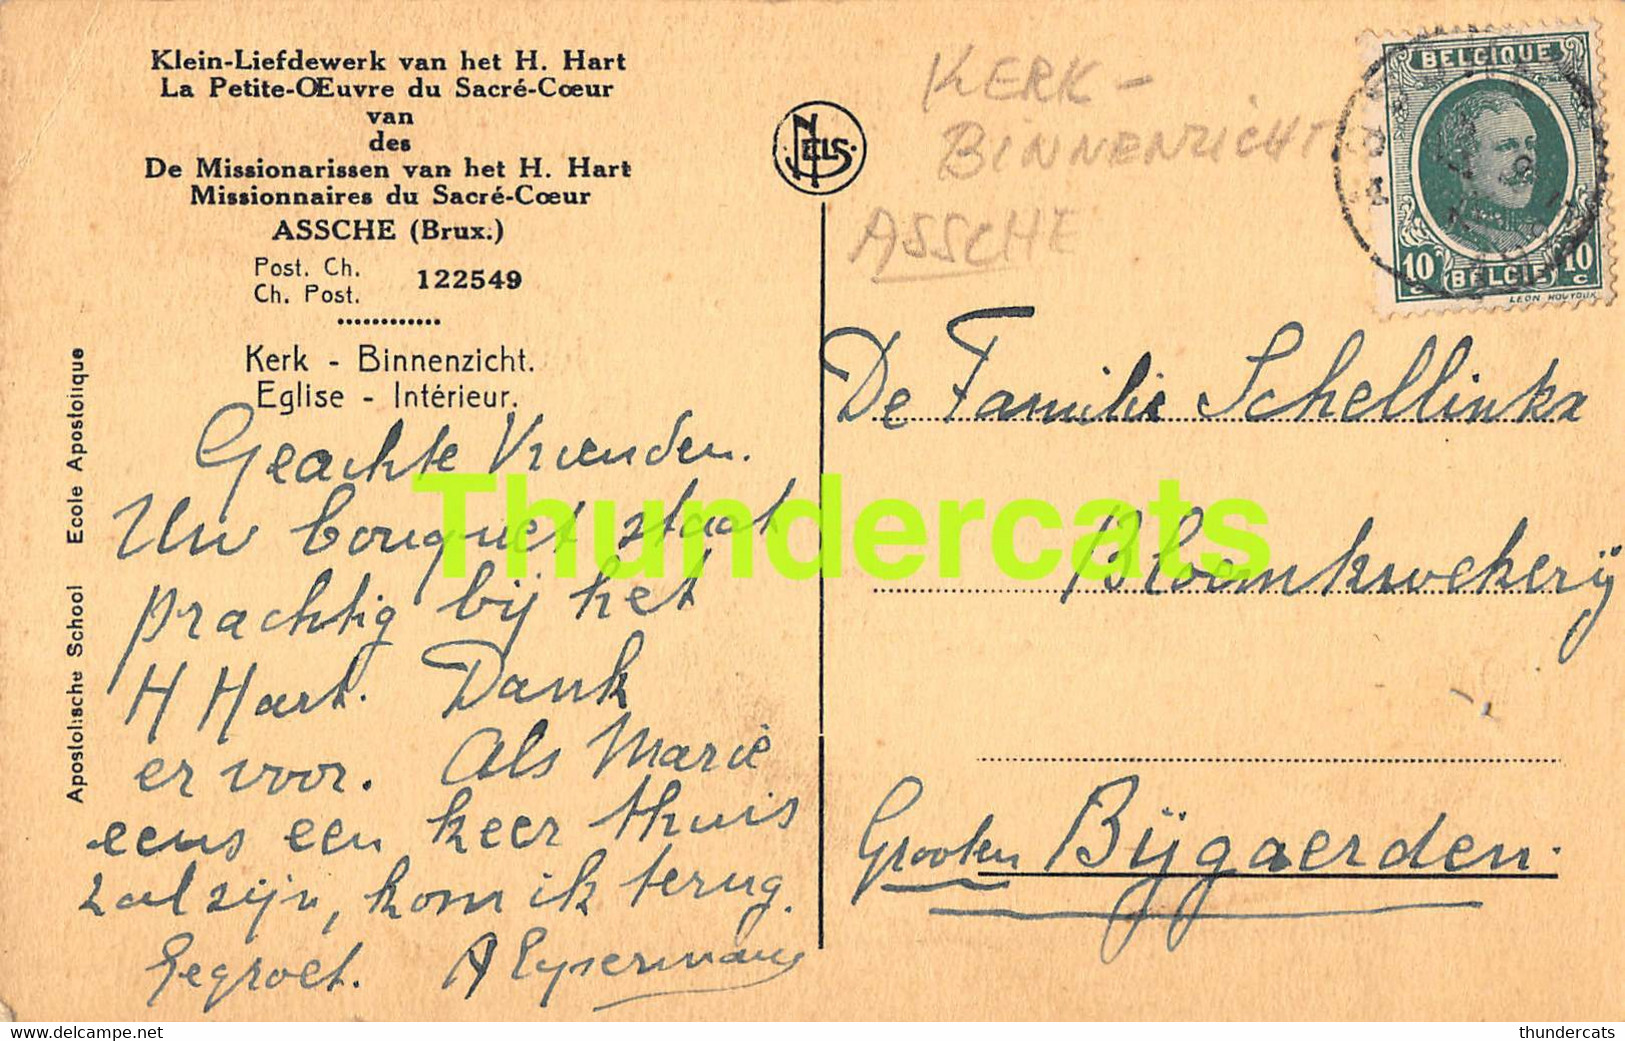 Klein-Liefdewerk van het H. Hart
La Petite-Œuvre du Sacré-Cœur
van
des
De Missionarissen van het H. Hart
Missionnaires du Sacré-Cœur
ASSCHE (Brux.)
Post. Ch.
Ch. Post. 122549
Kerk - Binnenzicht.
Eglise - Intérieur.
Apostolische School Ecole Apostolique
Geachte Vrienden.
Uw bouquet staat
prachtig bij het
H Hart. Dank
er voor. Als Marie
eens een keer thuis
zal zijn, kom ik terug.
Gegroet. A
NELS
KERK -
BINNENZICHT
ASSCHE
BELGIQUE
10 c BELGIË 10 c
De Familie Schellinkx
Bloemkwekerij
Grooten Bijgaerden.
Thundercats
thundercats
delcampe.net